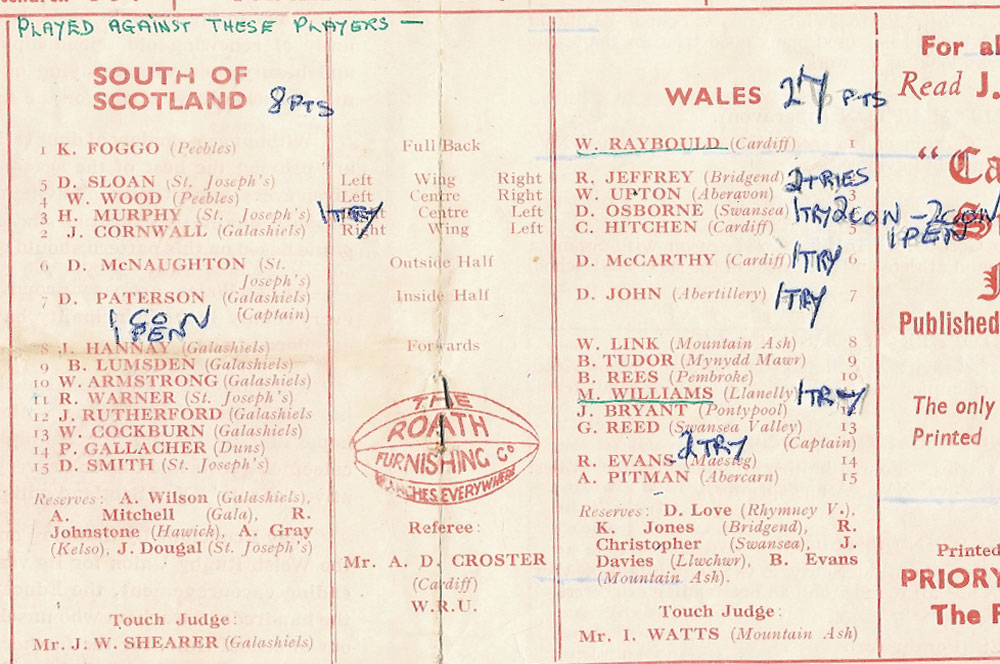 PLAYED AGAINST THESE PLAYERS —
SOUTH OF
SCOTLAND 8 PTS
1 K. FOGGO (Peebles)
5 D. SLOAN (St. Joseph's)
4 W. WOOD (Peebles)
3 H. MURPHY (St. Joseph's) 1 TRY
2 J. CORNWALL (Galashiels)
6 D. McNAUGHTON (St.
Joseph's)
7 D. PATERSON (Galashiels)
(Captain)
1 CON
1 PEN
8 J. HANNAY (Galashiels)
9 B. LUMSDEN (Galashiels)
10 W. ARMSTRONG (Galashiels)
11 R. WARNER (St. Joseph's)
12 J. RUTHERFORD (Galashiels
13 W. COCKBURN (Galashiels)
14 P. GALLACHER (Duns)
15 D. SMITH (St. Joseph's)
Reserves: A. Wilson (Galashiels),
A. Mitchell (Gala), R.
Johnstone (Hawick), A. Gray
(Kelso), J. Dougal (St. Joseph's)
Touch Judge:
Mr. J. W. SHEARER (Galashiels)
Full Back
Left Wing Right
Left Centre Right
Right Centre Left
Right Wing Left
Outside Half
Inside Half
Forwards
THE
ROATH
FURNISHING Co
BRANCHES EVERYWHERE
Referee:
Mr. A. D. CROSTER
(Cardiff)
W.R.U.
WALES 27 PTS
W. RAYBOULD (Cardiff) 1
R. JEFFREY (Bridgend) 2 TRIES
W. UPTON (Aberavon) 3
D. OSBORNE (Swansea) 1 TRY 2 CON - 2 CON
C. HITCHEN (Cardiff) 5 1 PEN
D. McCARTHY (Cardiff) 1 TRY 6
D. JOHN (Abertillery) 1 TRY 7
W. LINK (Mountain Ash) 8
B. TUDOR (Mynydd Mawr) 9
B. REES (Pembroke) 10
M. WILLIAMS (Llanelly) 1 TRY
J. BRYANT (Pontypool) 12
G. REED (Swansea Valley) 13
(Captain)
2 TRY
R. EVANS (Maesteg) 14
A. PITMAN (Abercarn) 15
Reserves: D. Love (Rhymney V.),
K. Jones (Bridgend), R.
Christopher (Swansea), J.
Davies (Llwchwr), B. Evans
(Mountain Ash).
Touch Judge:
Mr. I. WATTS (Mountain Ash)
For al
Read J.
"Ca
Published
The only
Printed
Printed
PRIORY
The P